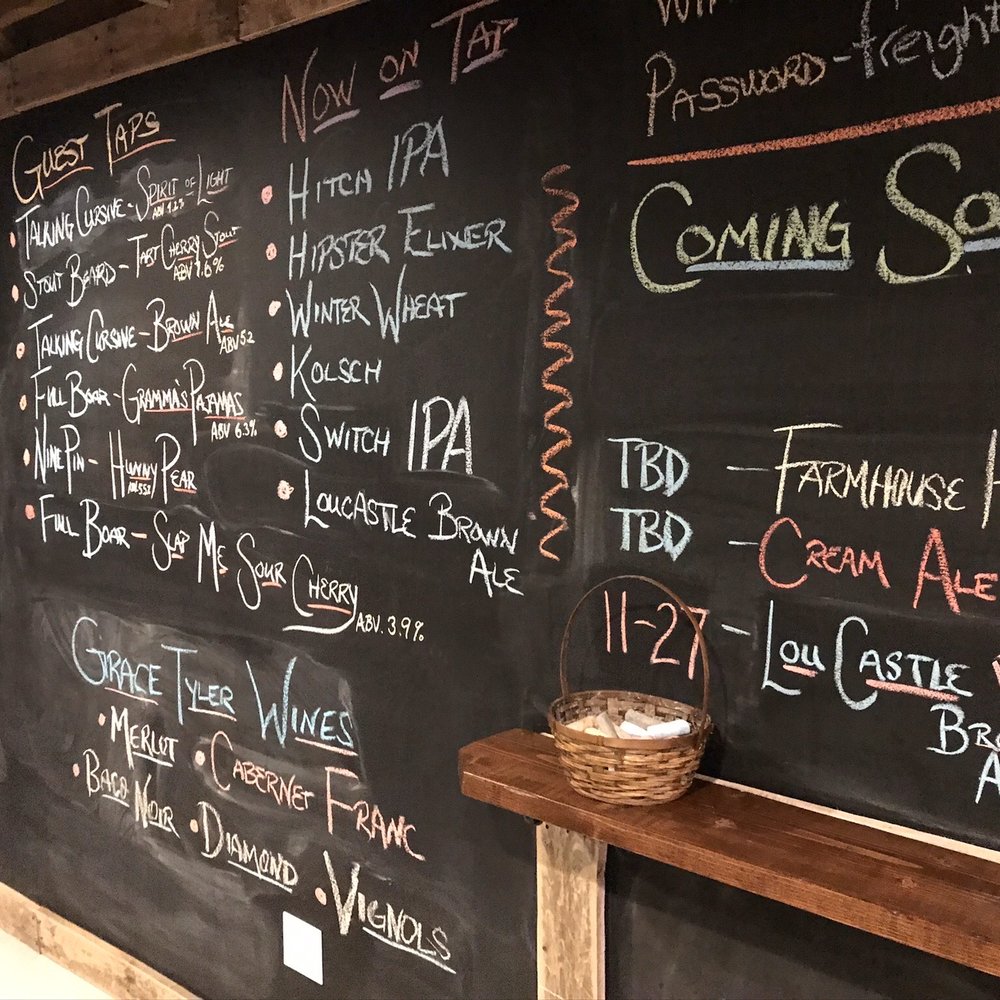 Guest Taps
Talking Cursive - Spirit of Light
Stout Beard - Tart Cherry Stout
ABV 7.6%
Talking Cursive - Brown Ale
ABV 5.2
Full Boar - Gramma's Pajamas
ABV 6.3%
Nine Pin - Hunny Pear
Full Boar - Slap Me Sour Cherry
ABV. 3.9%
Grace Tyler Wines
Merlot
Cabernet Franc
Baco Noir
Diamond
Vignols
Now on Tap
Hitch IPA
Hipster Elixer
Winter Wheat
Kolsch
Switch IPA
Loucastle Brown
Ale
Password - freight
Coming
TBD - Farmhouse
TBD - Cream Ale
11-27 - Lou Castle